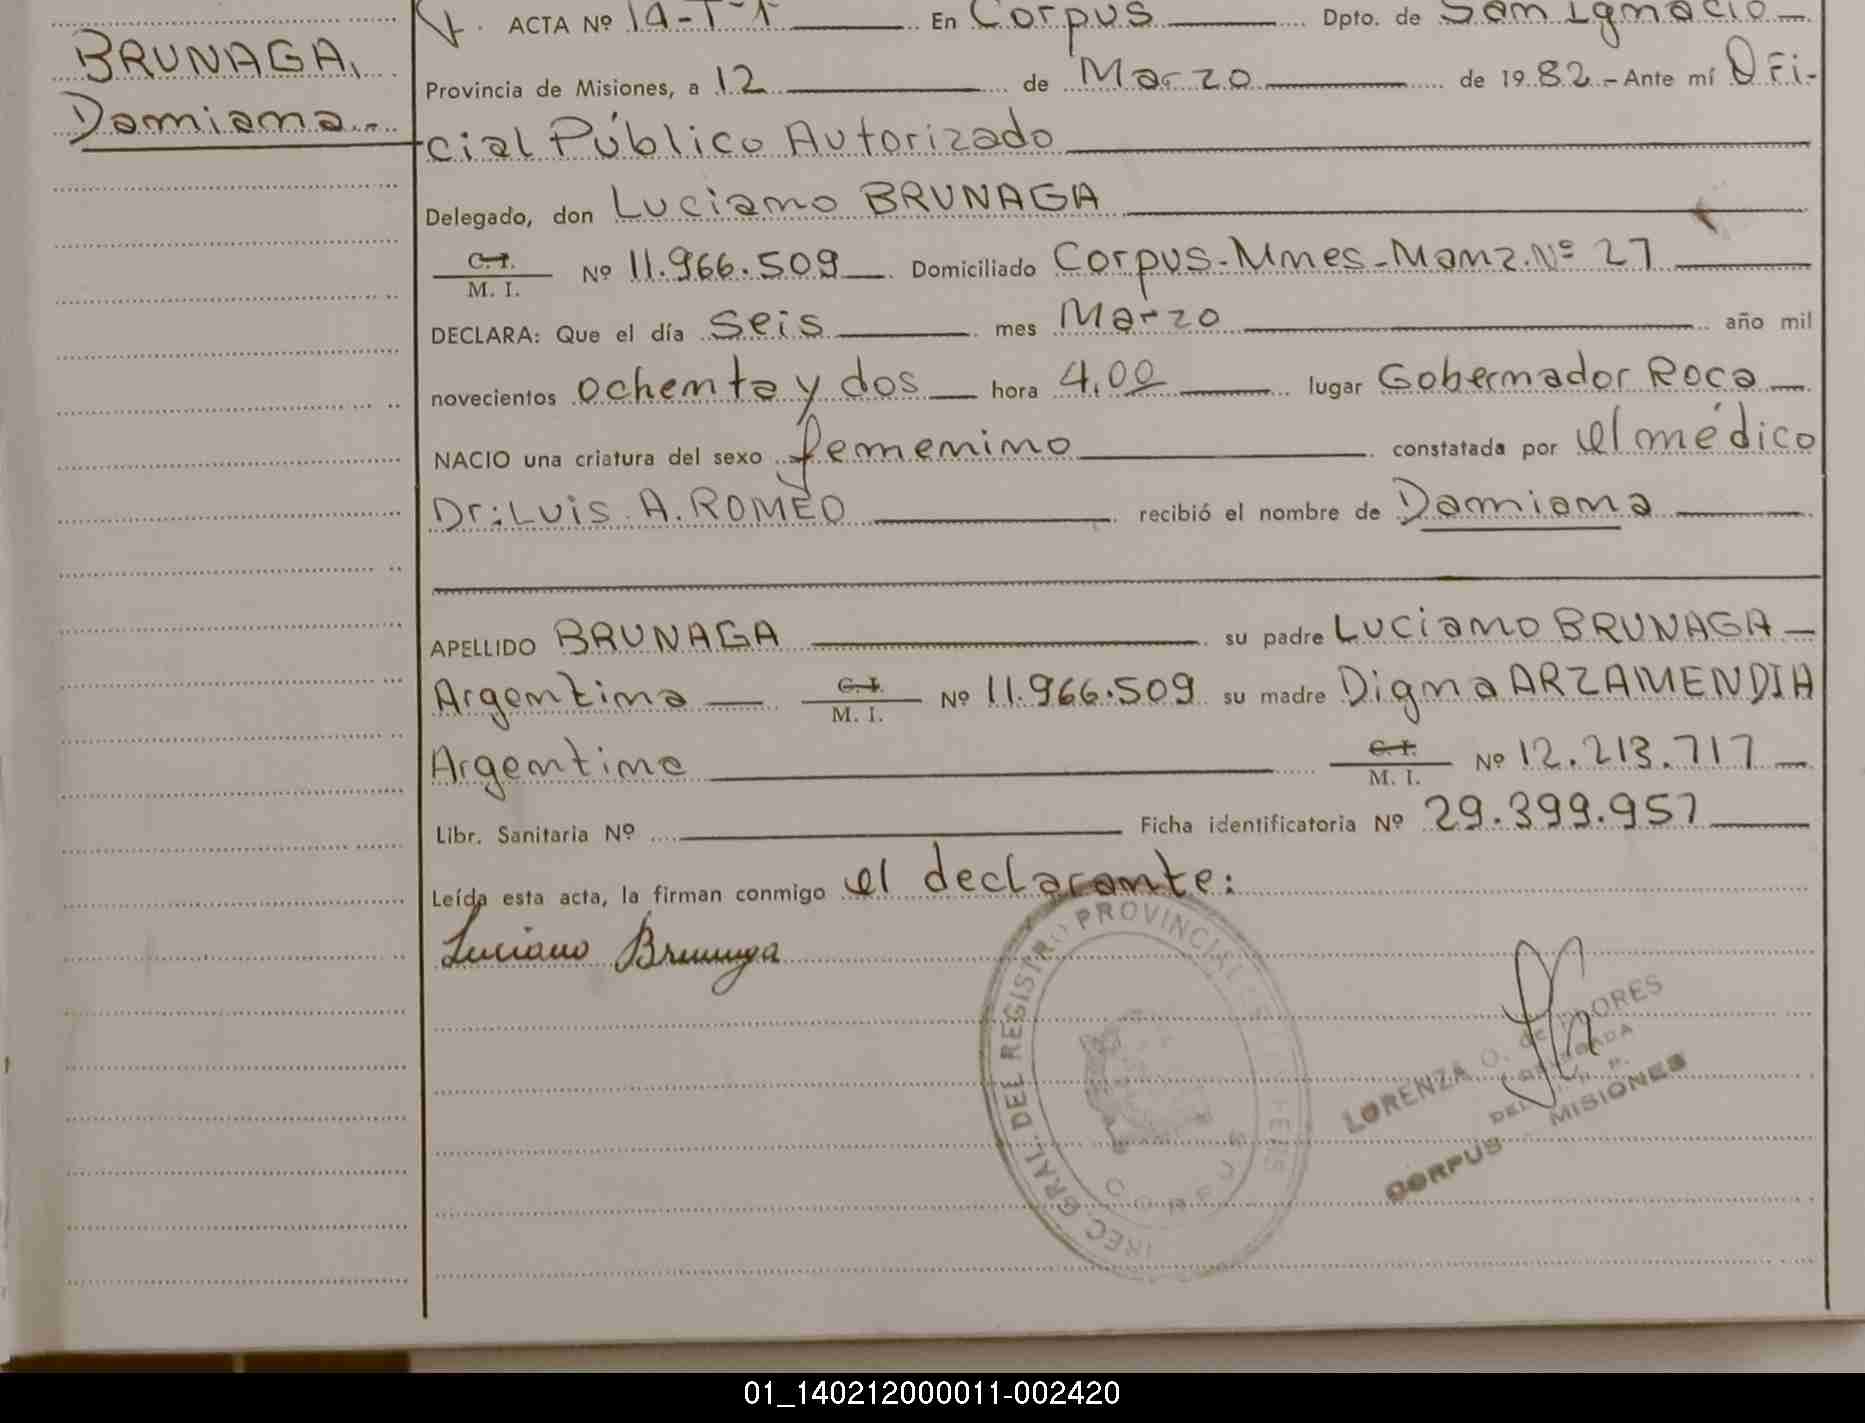 BRUNAGA,
Damiana.-
ACTA Nº En Corpus Dpto. de San Ignacio
Provincia de Misiones, a 12 de Marzo de 1982.- Ante mí Ofi-
cial Público Autorizado
Delegado, don Luciano BRUNAGA
C. I.
M. I. Nº 11.966.509 Domiciliado Corpus-Mnes-Manz.Nº 27
DECLARA: Que el día seis mes Marzo año mil
novecientos ochenta y dos hora 4,00 lugar Gobernador Roca
NACIO una criatura del sexo femenino constatada por el médico
Dr: Luis A. ROMEO recibió el nombre de Damiana
APELLIDO BRUNAGA su padre Luciano BRUNAGA
Argentina C. I. M. I. Nº 11.966.509 su madre Digna ARZAMENDIA
Argentina C. I. M. I. Nº 12.213.717
Libr. Sanitaria Nº Ficha identificatoria Nº 29.399.957
Leída esta acta, la firman conmigo el declarante:
Luciano Brunaga
GRAL. DEL REGISTRO PROVINCIAL
CORPUS
LORENZA O. de FLORES
DELEGADA
CORPUS MISIONES
01_140212000011-002420